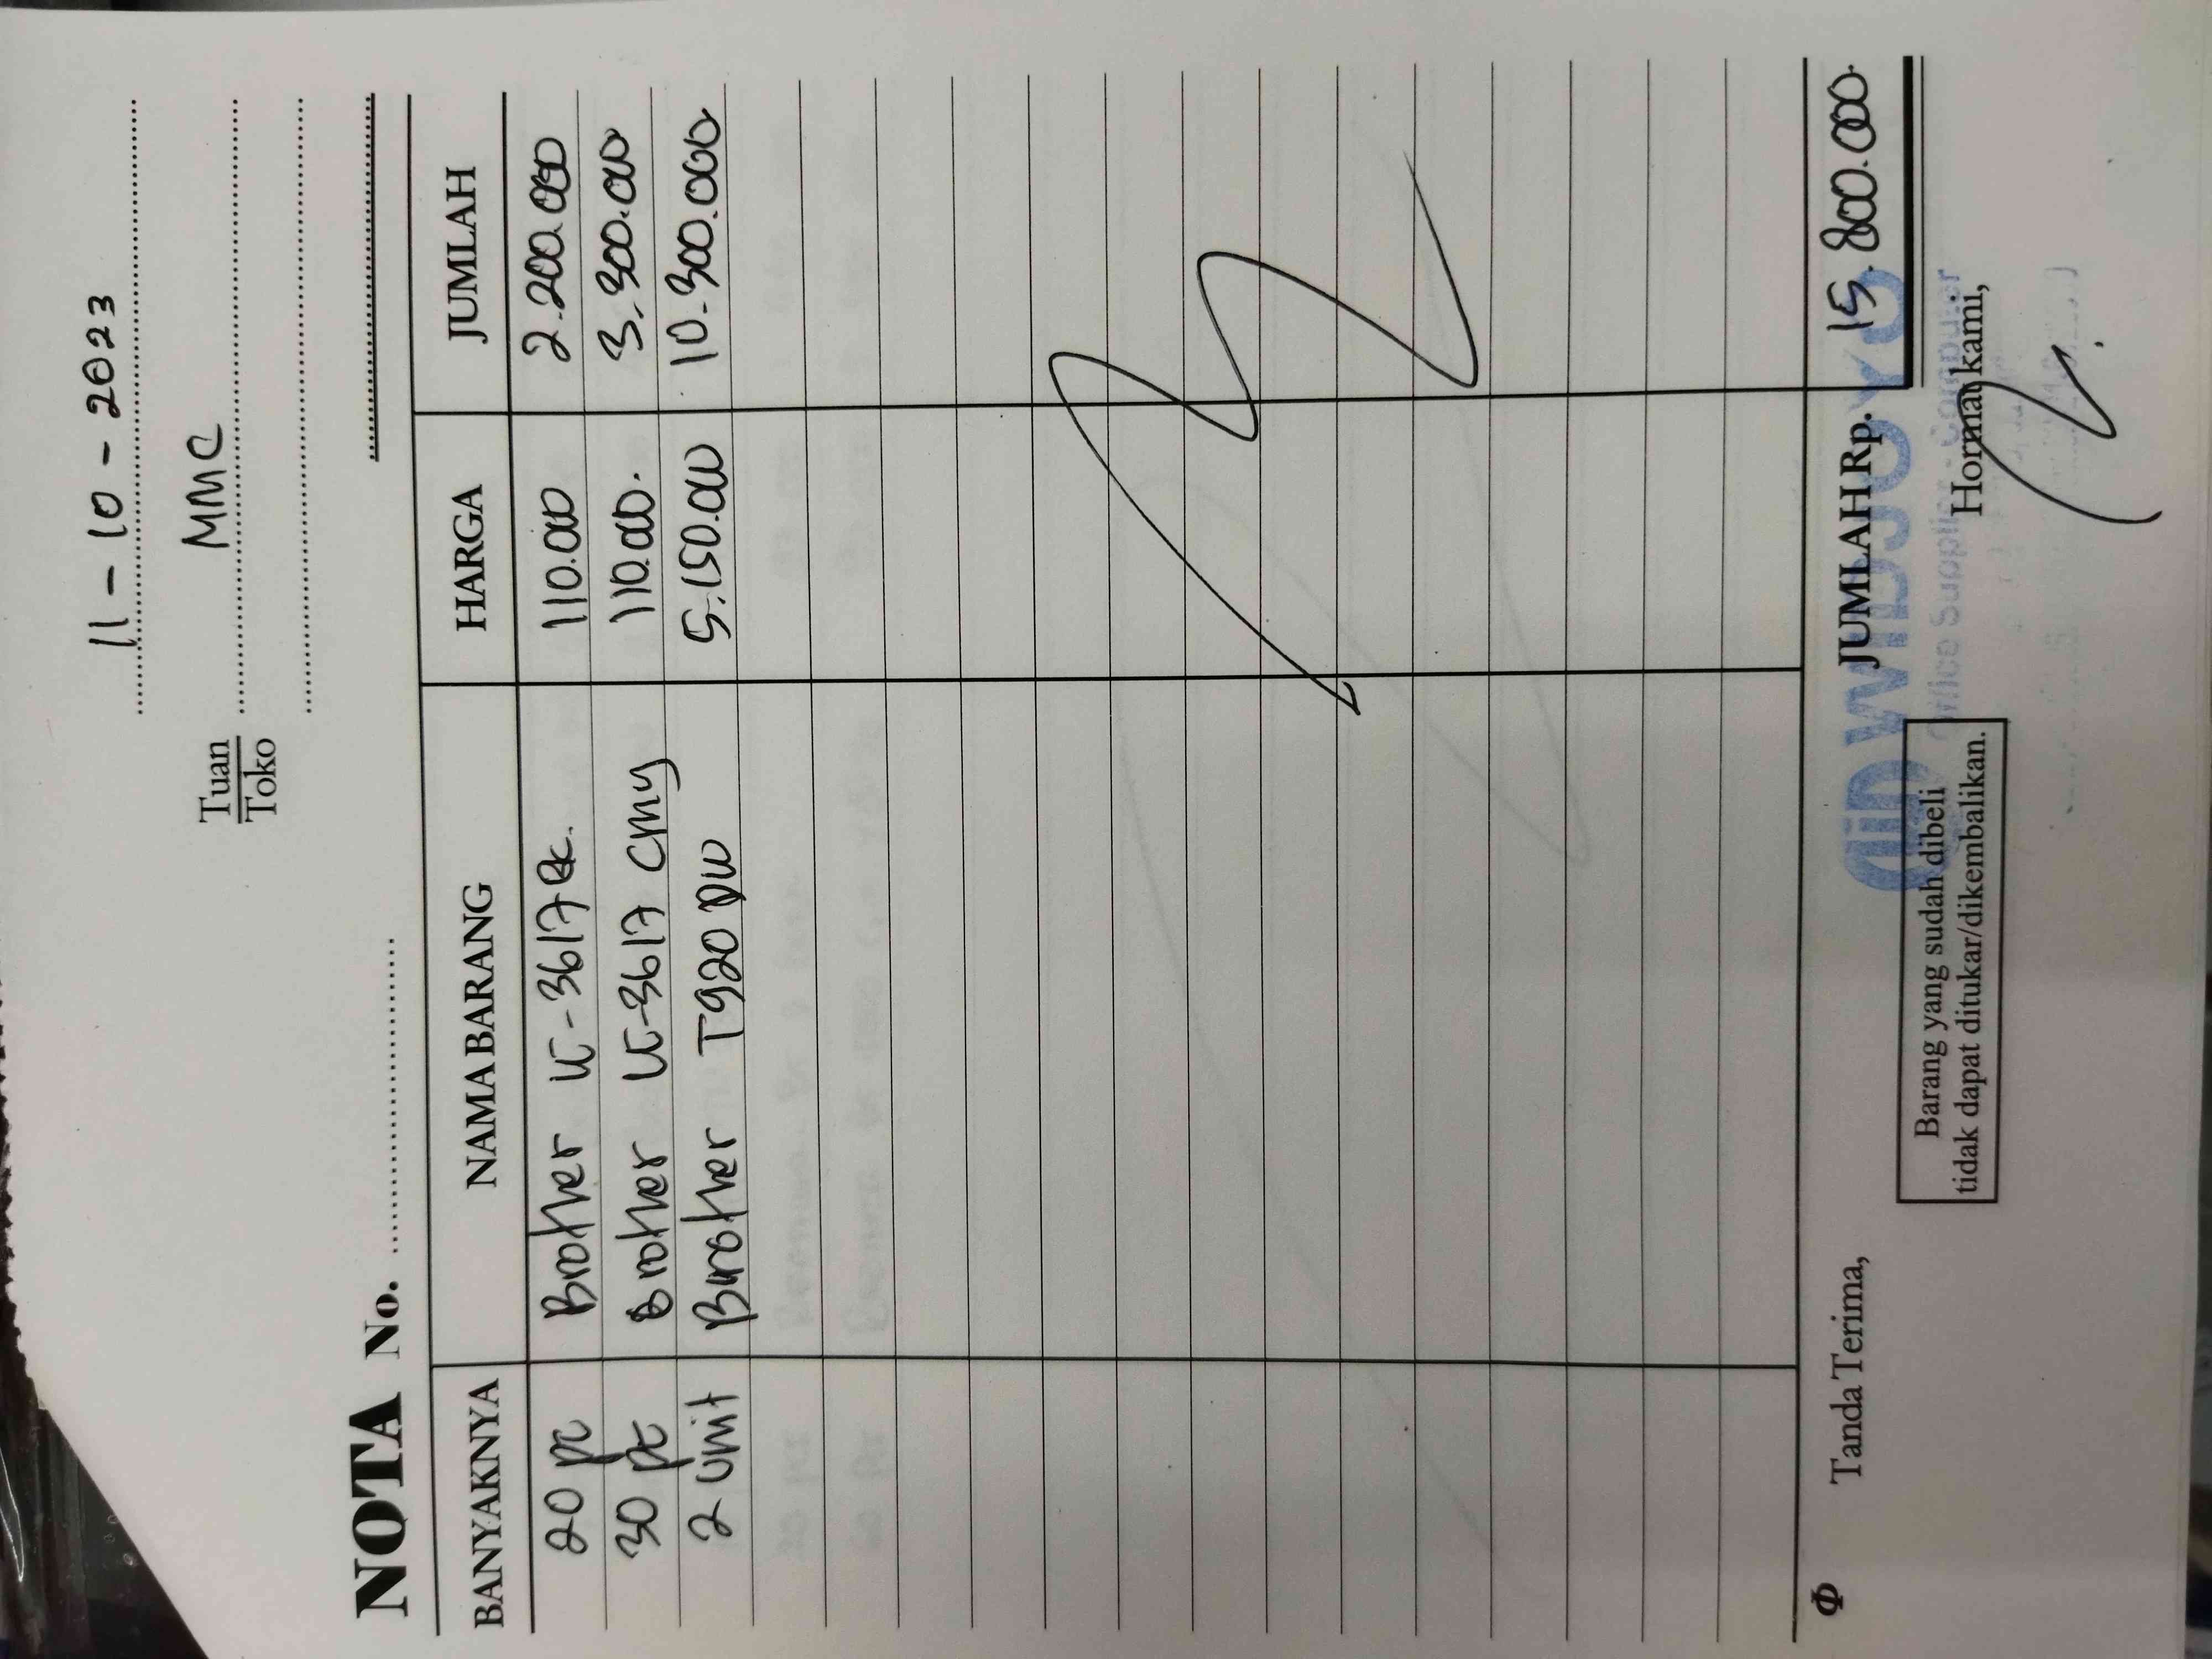 11 - 10 - 2023
Tuan
Toko
MMC
NOTA No.
BANYAKNYA NAMA BARANG HARGA JUMLAH
20 pc Brother LC-3617 BK. 110.000 2.200.000
30 pc Brother LC-3617 CMY 110.000. 3.300.000
2 Unit Brother T920 DW 5.150.000 10.300.000
Φ Tanda Terima, JUMLAH Rp. 15.800.000.
Barang yang sudah dibeli
tidak dapat ditukar/dikembalikan.
Hormat kami,